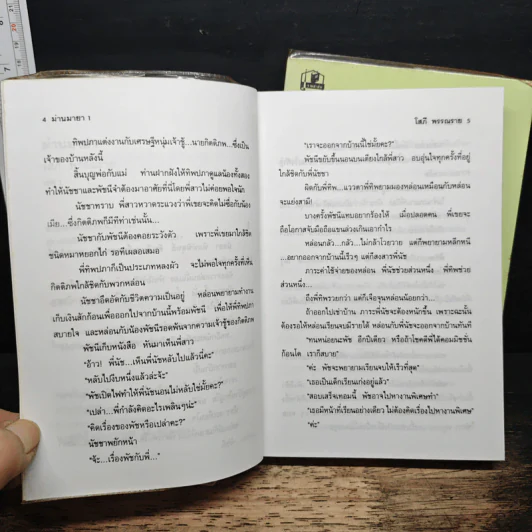 4 ม่านมายา 1
ทิพปภาแต่งงานกับเศรษฐีหนุ่มเจ้าชู้...นายกิตติภพ...ซึ่งเป็น
เจ้าของบ้านหลังนี้
สิ้นบุญพ่อกับแม่ ท่านฝากฝังให้ทิพปภาดูแลน้องทั้งสอง
ทำให้นัชชาและพัชนีจำต้องมาอาศัยที่นี่โดยพี่สาวไม่ค่อยพอใจนัก
นัชชาทราบ พี่สาวหวาดระแวงว่าพี่เขยจะคิดไม่ซื่อกับน้อง
เมีย...ซึ่งกิตติภพก็มีทีท่าเช่นนั้น...
นัชชากับพัชนีต้องคอยระวังตัว เพราะพี่เขยมาใกล้ชิด
ชนิดหมาหยอกไก่ รอทีเผลอเสมอ
พี่ทิพปภาก็เป็นประเภทหลงผัว จะไม่พอใจทุกครั้งที่เห็น
กิตติภพใกล้ชิดกับพวกหล่อน
นัชชาอึดอัดกับชีวิตความเป็นอยู่ หล่อนพยายามทำงาน
เก็บเงินสักก้อนเพื่อออกไปจากบ้านนี้พร้อมพัชนี เพื่อให้พี่ทิพปภา
สบายใจ และหล่อนกับน้องพัชนีรอดพ้นจากความเจ้าชู้ของกิตติภพ
พัชนีเก็บหนังสือ หันมาเห็นพี่สาว
"อ้าว! พี่นัช...เห็นพี่นัชหลับไปแล้วนี่คะ"
"หลับไปงีบหนึ่งแล้วล่ะจ้ะ"
"พัชเปิดไฟทำให้พี่นัชนอนไม่หลับใช่มั้ยคะ?"
"เปล่า...พี่กำลังคิดอะไรเพลินๆน่ะ"
"คิดเรื่องของพัชหรือเปล่าคะ?"
นัชชาพยักหน้า
"จ้ะ...เรื่องพัชกับพี่..."
โสภี พรรณราย 5
"เราจะออกจากบ้านนี้ใช่มั้ยคะ?"
พัชนีขยับขึ้นนอนบนเตียงใกล้พี่สาว อบอุ่นใจทุกครั้งที่อยู่
ใกล้ชิดกับพี่นัชชา
ผิดกับพี่ทิพ...แววตาพี่ทิพยามมองหล่อนเหมือนกับหล่อน
จะแย่งสามี!
บางครั้งพัชนีแทบอยากร้องไห้ เมื่อปลอดคน พี่เขยจะ
ถือโอกาสจับมือถือแขนล่วงเกินเอากำไร
หล่อนกลัว...กลัว...ไม่กล้าโวยวาย แต่ก็พยายามหลีกหนี
...อยากออกจากบ้านนี้เร็วๆ แต่ก็สงสารพี่นัช
ภาระค่าใช้จ่ายของหล่อน พี่นัชช่วยส่วนหนึ่ง พี่ทิพช่วย
ส่วนหนึ่ง...
ถึงพี่ทิพรวยกว่า แต่ก็เจือจุนหล่อนน้อยกว่า...
ถ้าออกไปเช่าบ้าน ภาระพี่นัชจะต้องหนักขึ้น เพราะฉะนั้น
ต้องรอให้หล่อนเรียนจบมีรายได้ หล่อนกับพี่นัชจะออกจากบ้านทันที
"ทนหน่อยนะพัช อีกปีเดียว หรือถ้าโชคดีพี่ได้คอมมิชชั่น
ก้อนโต เราก็สบาย"
"ค่ะ พัชจะพยายามเรียนจบให้เร็วที่สุด"
"เธอเป็นเด็กเรียนเก่งอยู่แล้ว"
"สอบเสร็จเทอมนี้ พัชอาจไปหางานพิเศษทำ"
"เธอมีหน้าที่เรียนอย่างเดียว ไม่ต้องคิดเรื่องไปหางานพิเศษ"
"ค่ะ"